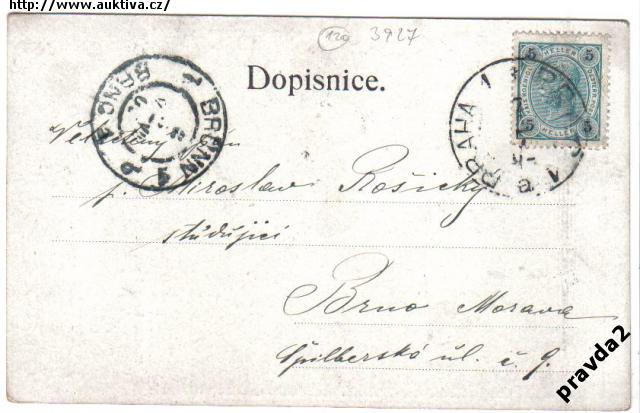 http://www.auktiva.cz/
120 3927
Dopisnice.
5 HELLER 5
5 HELLER 5
BRÜNN 1
BRNO
PRAHA 1
p. Miroslav Rošický
studující
Brno Morava
Špilberská ul. č. 9.
pravda2